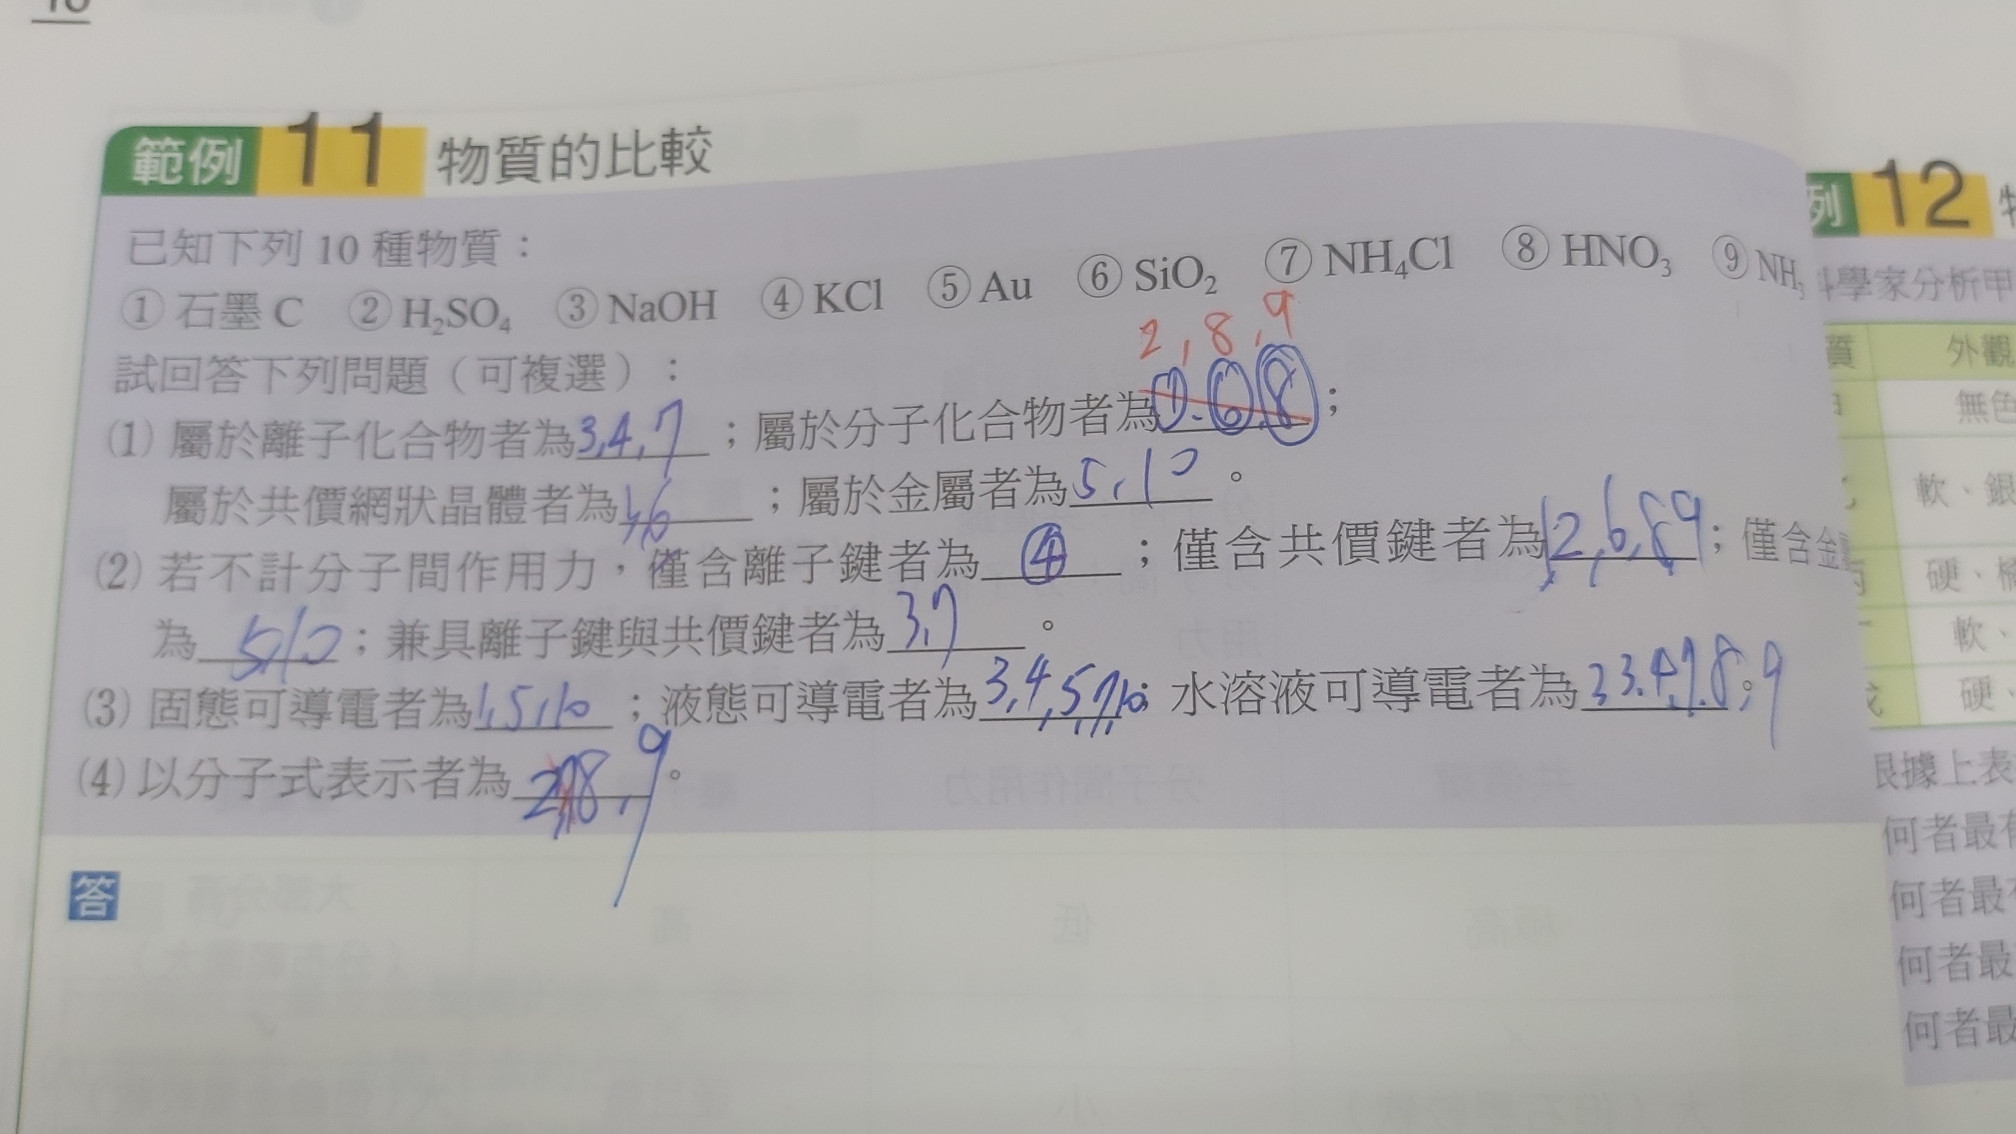 範例 11 物質的比較
已知下列 10 種物質：
① 石墨 C ② H₂SO₄ ③ NaOH ④ KCl ⑤ Au ⑥ SiO₂ ⑦ NH₄Cl ⑧ HNO₃ ⑨ NH₃
試回答下列問題（可複選）：
2,8,9
(1) 屬於離子化合物者為3,4,7；屬於分子化合物者為 6 8；
屬於共價網狀晶體者為1,6；屬於金屬者為5,10。
(2) 若不計分子間作用力，僅含離子鍵者為④；僅含共價鍵者為1,2,6,8,9；僅含金
為5,10；兼具離子鍵與共價鍵者為3,7。
(3) 固態可導電者為1,5,10；液態可導電者為3,4,5,7,10；水溶液可導電者為 3.4,7.8,9。
(4) 以分子式表示者為2 8,9。
答
列 12
科學家分析甲
質 外觀
無色
軟、銀
硬、
軟、
硬、
根據上表
何者最有
何者最
何者最
何者最